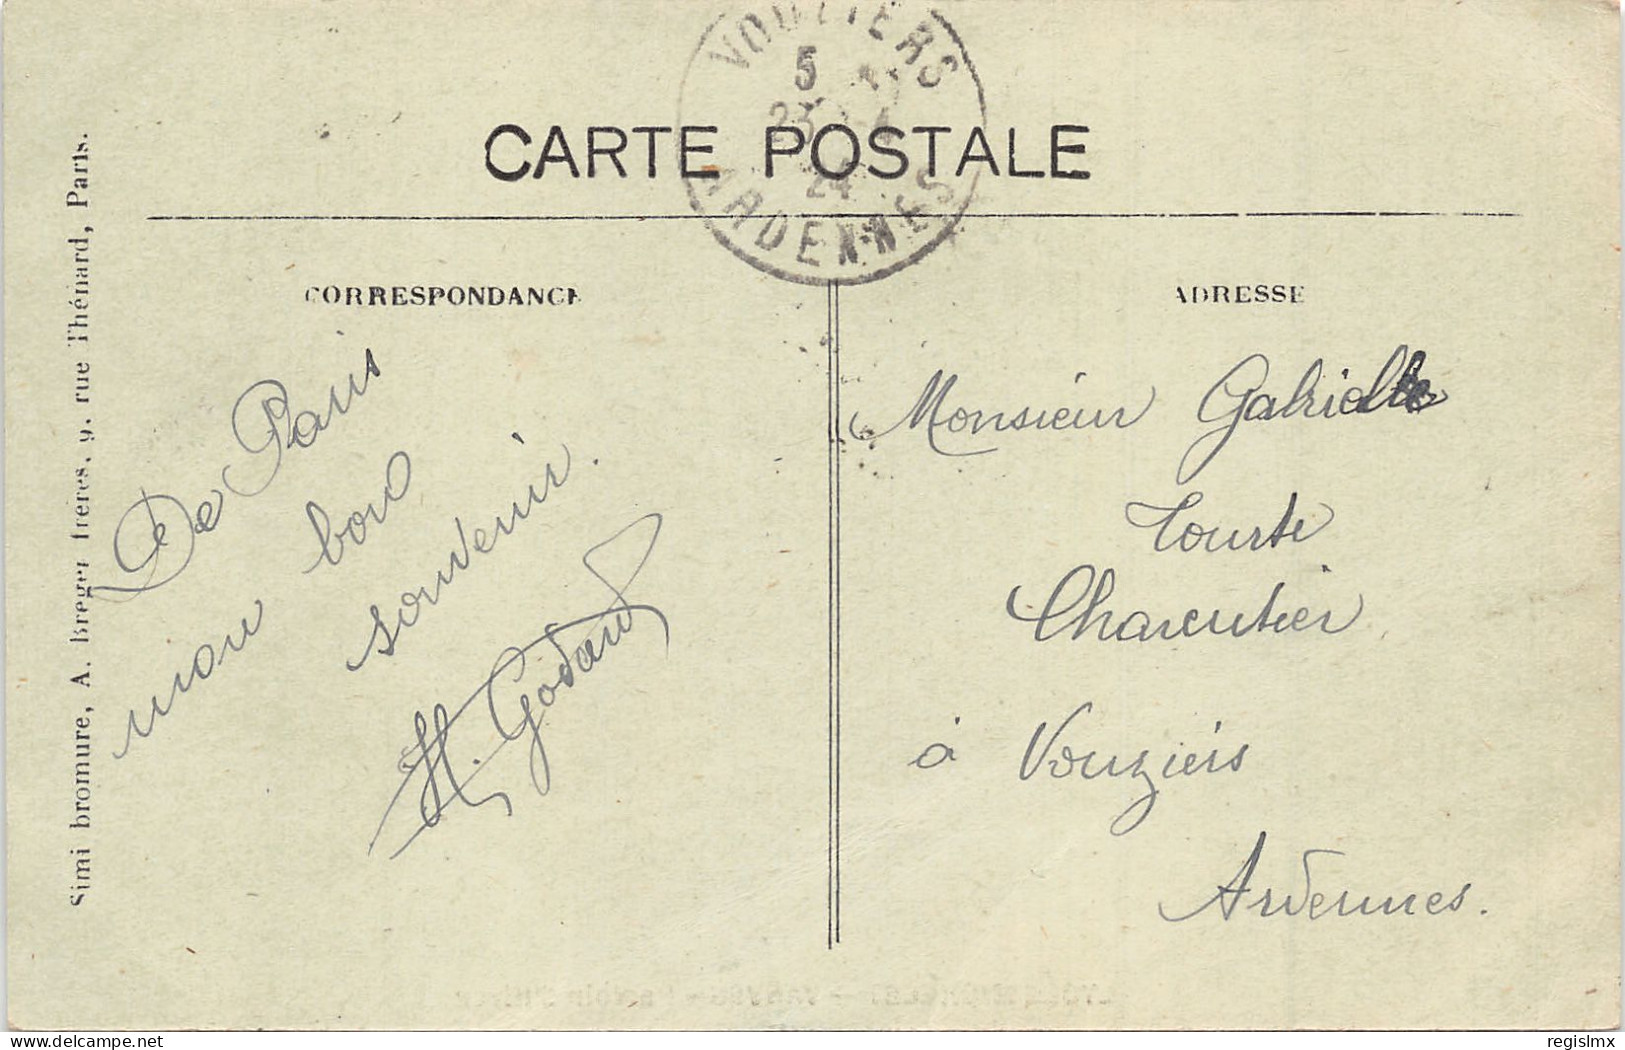 VOUZIERS
5
23 - 4
24
ARDENNES
CARTE POSTALE
CORRESPONDANCE
ADRESSE
Simi bromure, A. Breger frères, 9, rue Thénard, Paris.
De Paris
mon bon
souvenir.
H. Godard
Monsieur Gabriel
Tourte
Charcutier
à Vouziers
Ardennes.
regislmx